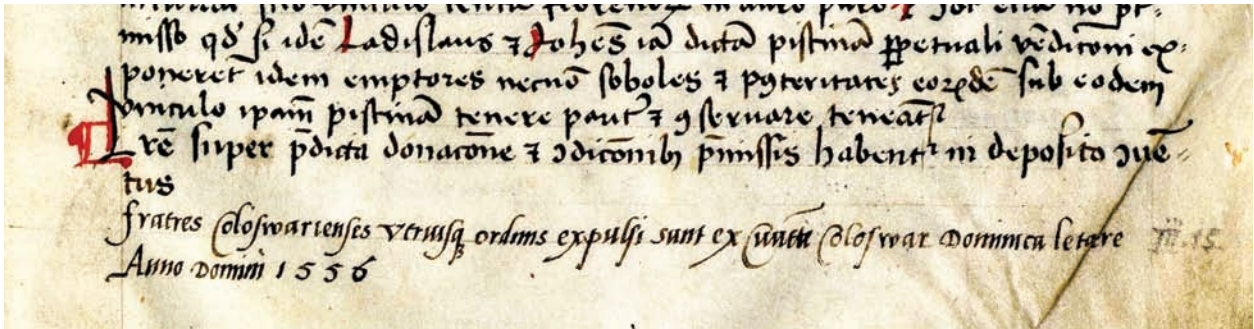 misso qđ si idē Ladislaus ⁊ Johēs iā dictā pistinā ꝑpetuali vēdicōni ex⸗
poneret idem emptores necnō soboles ⁊ pꝯteritates eorꝝdē sub eodem
vinculo ipam̄ pistinā tenere pariť ⁊ ꝯseruare teneāt᷑
Lrē super p̄dicta donacōne ⁊ ꝯdicōnibꝫ p̄missis habent᷑ in deposito ꝯuē⸗
tus
fratres Coloswarienses vtriusqꝫ ordinis expulsi sunt ex Ciuitate Coloswar Dominica letare
Anno Domini 1556
III. 15.